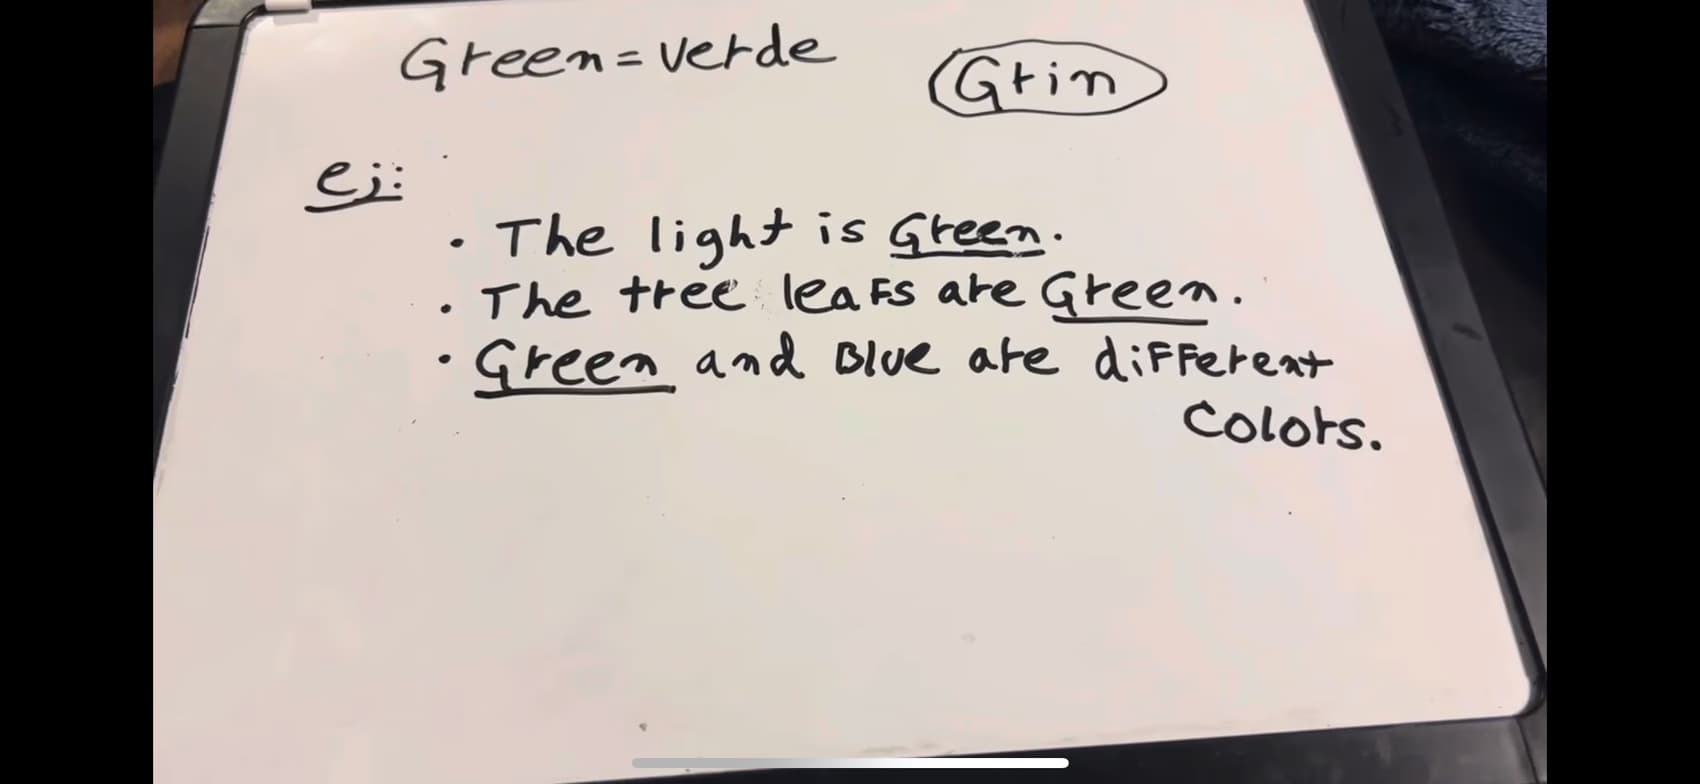 Green = verde
Grin
ej:
• The light is Green.
• The tree leaFs are Green.
• Green and Blue are diFFerent
Colors.